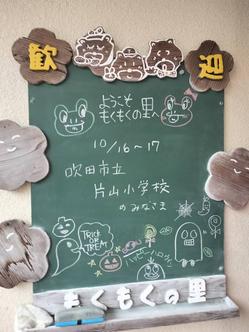 歓迎
ようこそ
もくもくの里へ
10/16~17
吹田市立
片山小学校
のみなさま
TRICK
OR
TREAT
ハッピーハロウィン
もくもくの里